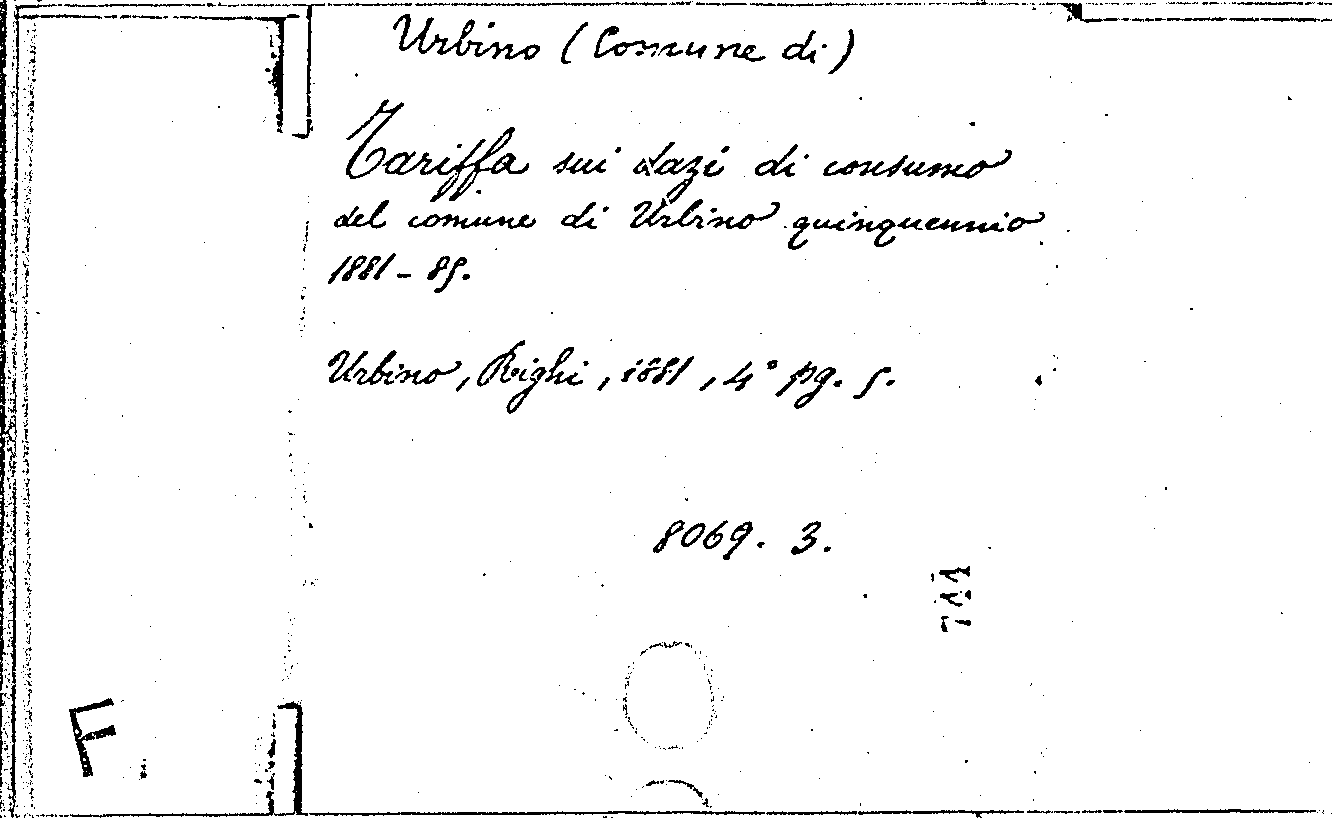 Urbino (Comune di)
Tariffa sui dazi di consumo
del comune di Urbino quinquennio
1881 - 85.
Urbino, Righi, 1881, 4° pg. 5.
8069. 3.
F